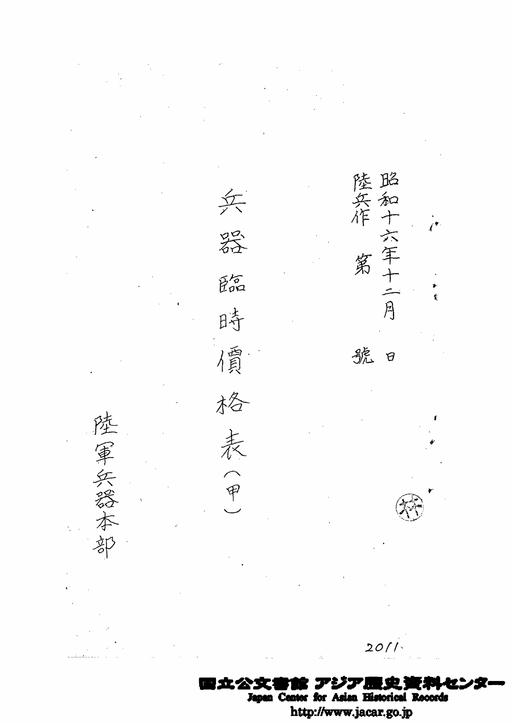 昭和十六年十二月 日
陸兵作 第 號
兵器臨時價格表(甲)
陸軍兵器本部
林
2011.
国立公文書館 アジア歴史資料センター
Japan Center for Asian Historical Records
http://www.jacar.go.jp